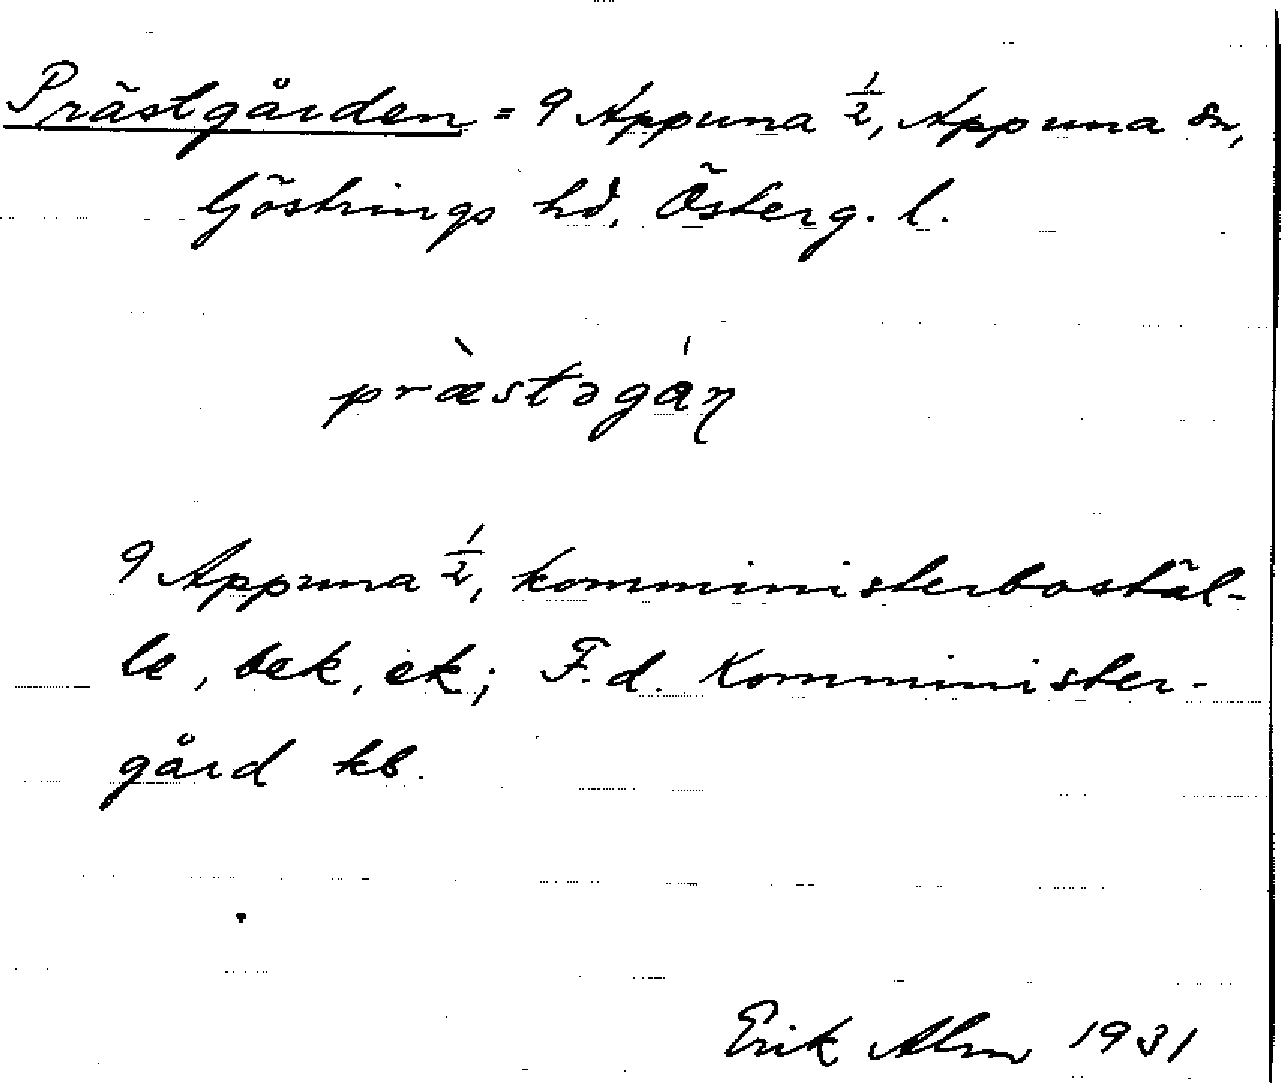 Prästgården = 9 Appuna 1/2, Appuna sn,
Göstrings hd, Österg. l.
præ̀stəgáɳ
9 Appuna 1/2, komministerboställ-
le, bek, ek; F.d. Komminister-
gård kb.
Erik Alm 1931